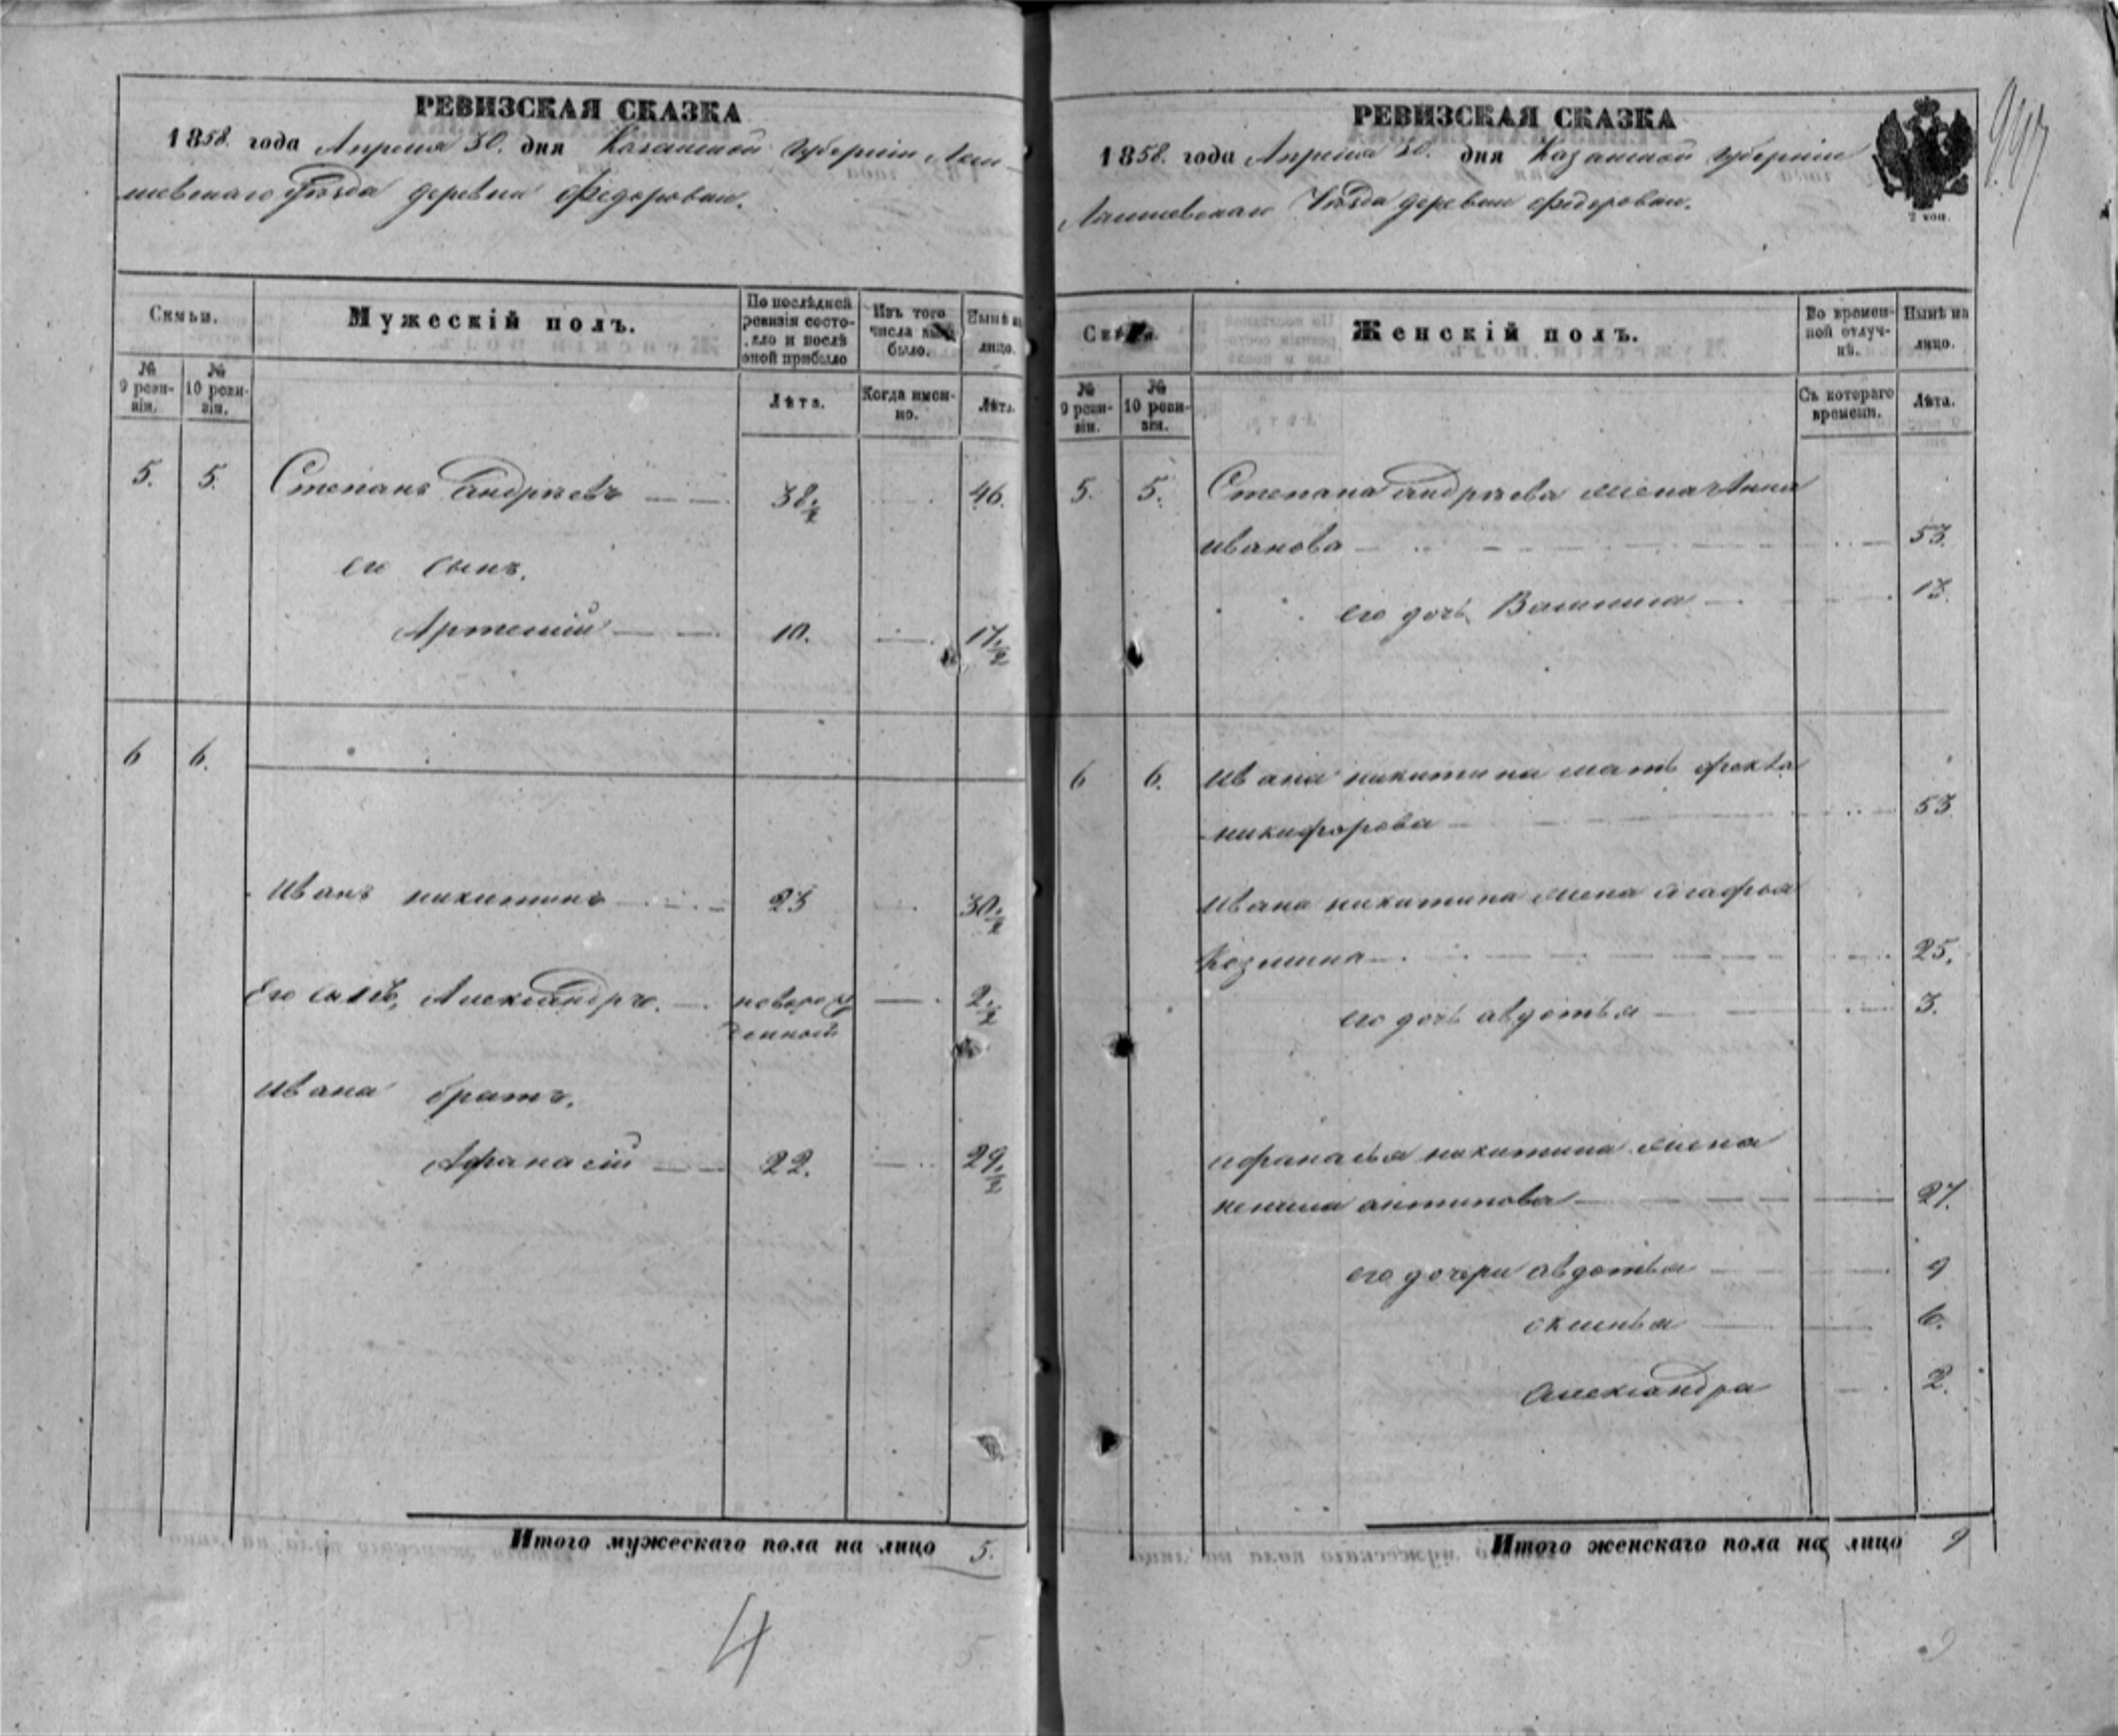 РЕВИЗСКАЯ СКАЗКА
1858 года Апреля 30. дня Казанской Губерніи Лаи-
шевскаго Уѣзда деревни Федоровки.
Семьи.
Мужескій полъ.
По послѣдней ревизіи состо-
яло и послѣ оной прибыло
Изъ того числа вы-
было.
Нынѣ на лицо.
№ 9 реви-
зіи.
№ 10 реви-
зіи.
Лѣта.
Когда имен-
но.
Лѣта.
5. 5. Степанъ Андрѣевъ 38 1/2 46.
его сынъ.
Артемій 10. 17 1/2
6 6.
Иванъ никитинъ 23 30 1/2
Его сынъ, Александръ. новорож
денной 2 1/2
Ивана братъ.
Афанасій 22. 29 1/2
Итого мужескаго пола на лицо 5.
4
5
РЕВИЗСКАЯ СКАЗКА
1858. года Апреля 30. дня Казанской губерніи
Лаишевскаго Уѣзда деревни федоровки.
2 коп.
Семьи.
Женскій полъ.
Во времен-
ной отлуч-
кѣ.
Нынѣ на лицо.
№ 9 реви-
зіи.
№ 10 реви-
зіи.
Съ котораго времени.
Лѣта.
5. 5. Степана андрѣева жена Анна
иванова 53.
его дочь 13.
6 6. Ивана никитина мать фекла
никифорова 53
Ивана никитина жена агафья
Козмина 25.
его дочь авдотья 3.
афанасья никитина жена
антипова 27.
его дочери авдотья 9
аксинья 6.
александра 2.
Итого женскаго пола на лицо 9
9